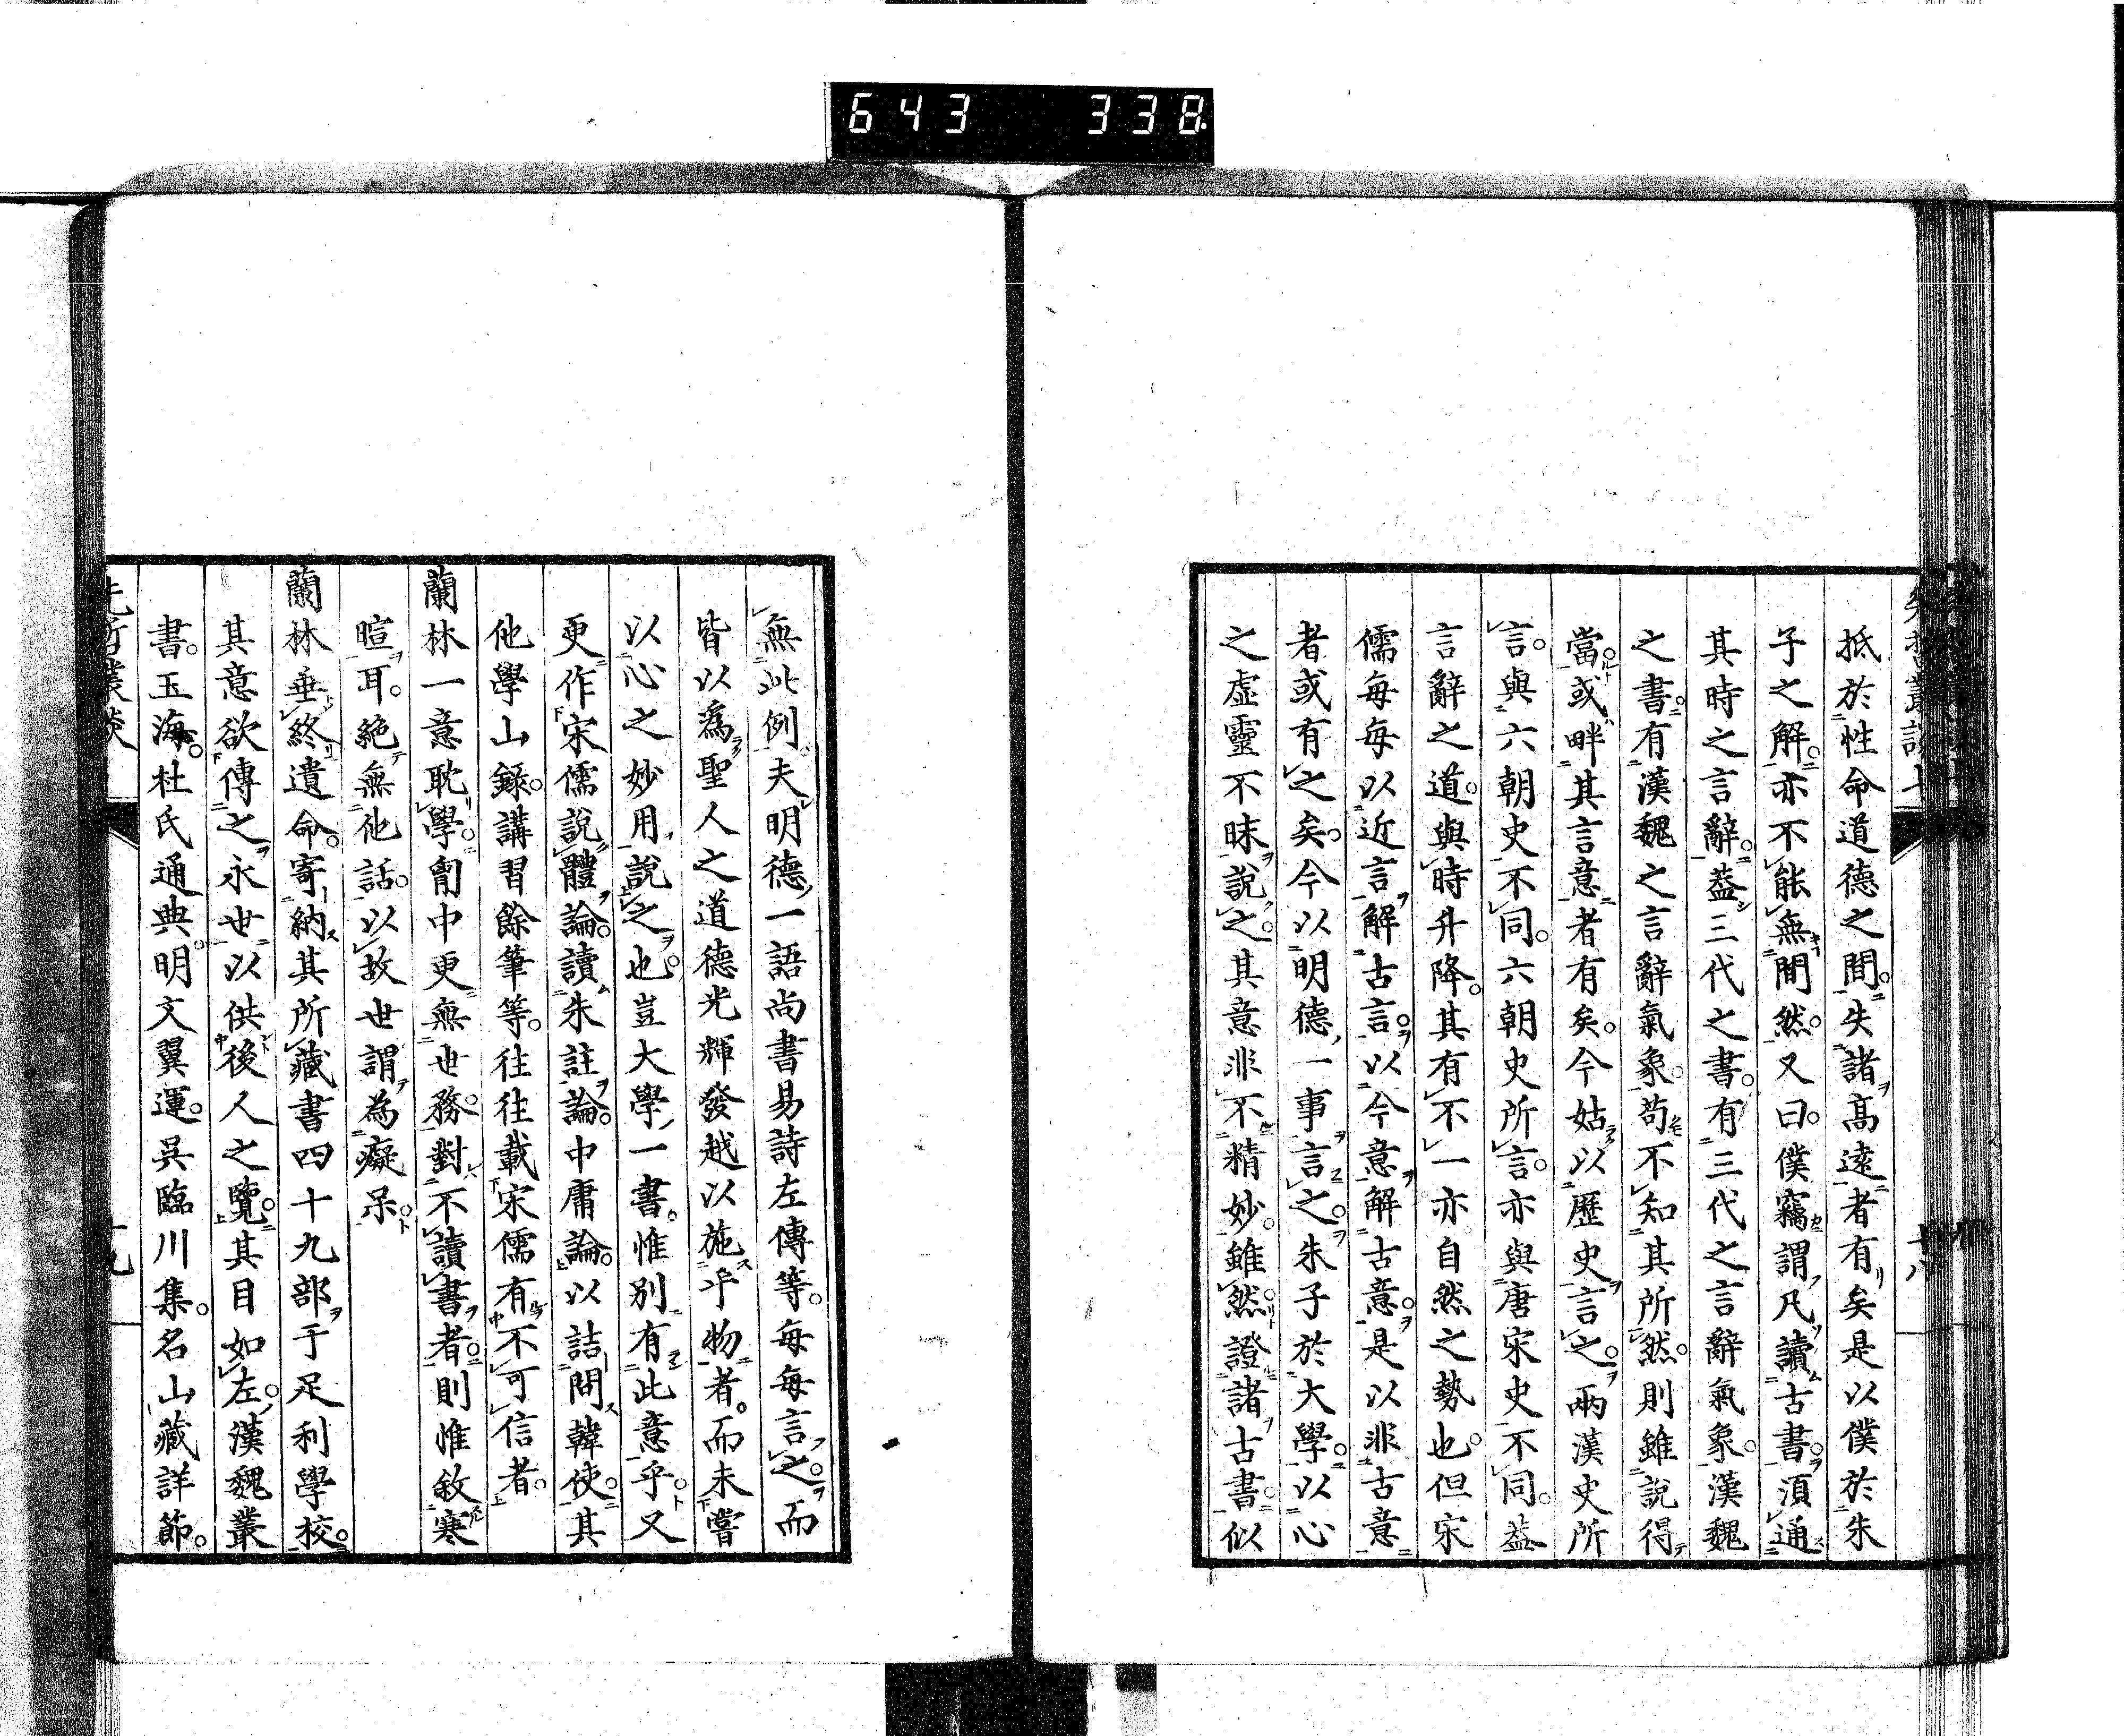 643 338
抵於性命道德之間。失諸高遠者有矣是以僕於朱
子之解。亦不能無間然。又曰。僕竊謂凡讀古書。須通
其時之言辭。蓋三代之書。有三代之言辭氣象。漢魏
之書。有漢魏之言辭氣象。苟不知其所然。則雖說得
當。或畔其言意者有矣。今姑以歷史言之。兩漢史所
言。與六朝史不同。六朝史所言。亦與唐宋史不同。蓋
言辭之道。與時升降。其有不一亦自然之勢也。但宋
儒每每以近言解古言。以今意解古意。是以非古意
者或有之矣。今以明德一事言之。朱子於大學。以心
之虛靈不昧說之。其意非不精妙。雖然證諸古書。似
無此例。夫明德一語尚書易詩左傳等。每每言之。而
皆以爲聖人之道德光輝發越以施乎物者。而未嘗
以心之妙用說之也。豈大學一書。惟別有此意乎。又
更作宋儒說體論。讀朱註論。中庸論。以詰問韓使。其
他學山錄。講習餘筆等。往往載宋儒有不可信者。
蘭林一意耽學。胷中更無世務。對不讀書者。則惟敘寒
暄耳。絶無他話。以故世謂為癡呆。
蘭林垂終遺命。寄納其所藏書四十九部于足利學校。
其意欲傳之永世以供後人之覽。其目如左。漢魏叢
書。玉海。杜氏通典。明文翼運。吳臨川集。名山藏詳節。
先哲叢談
十九